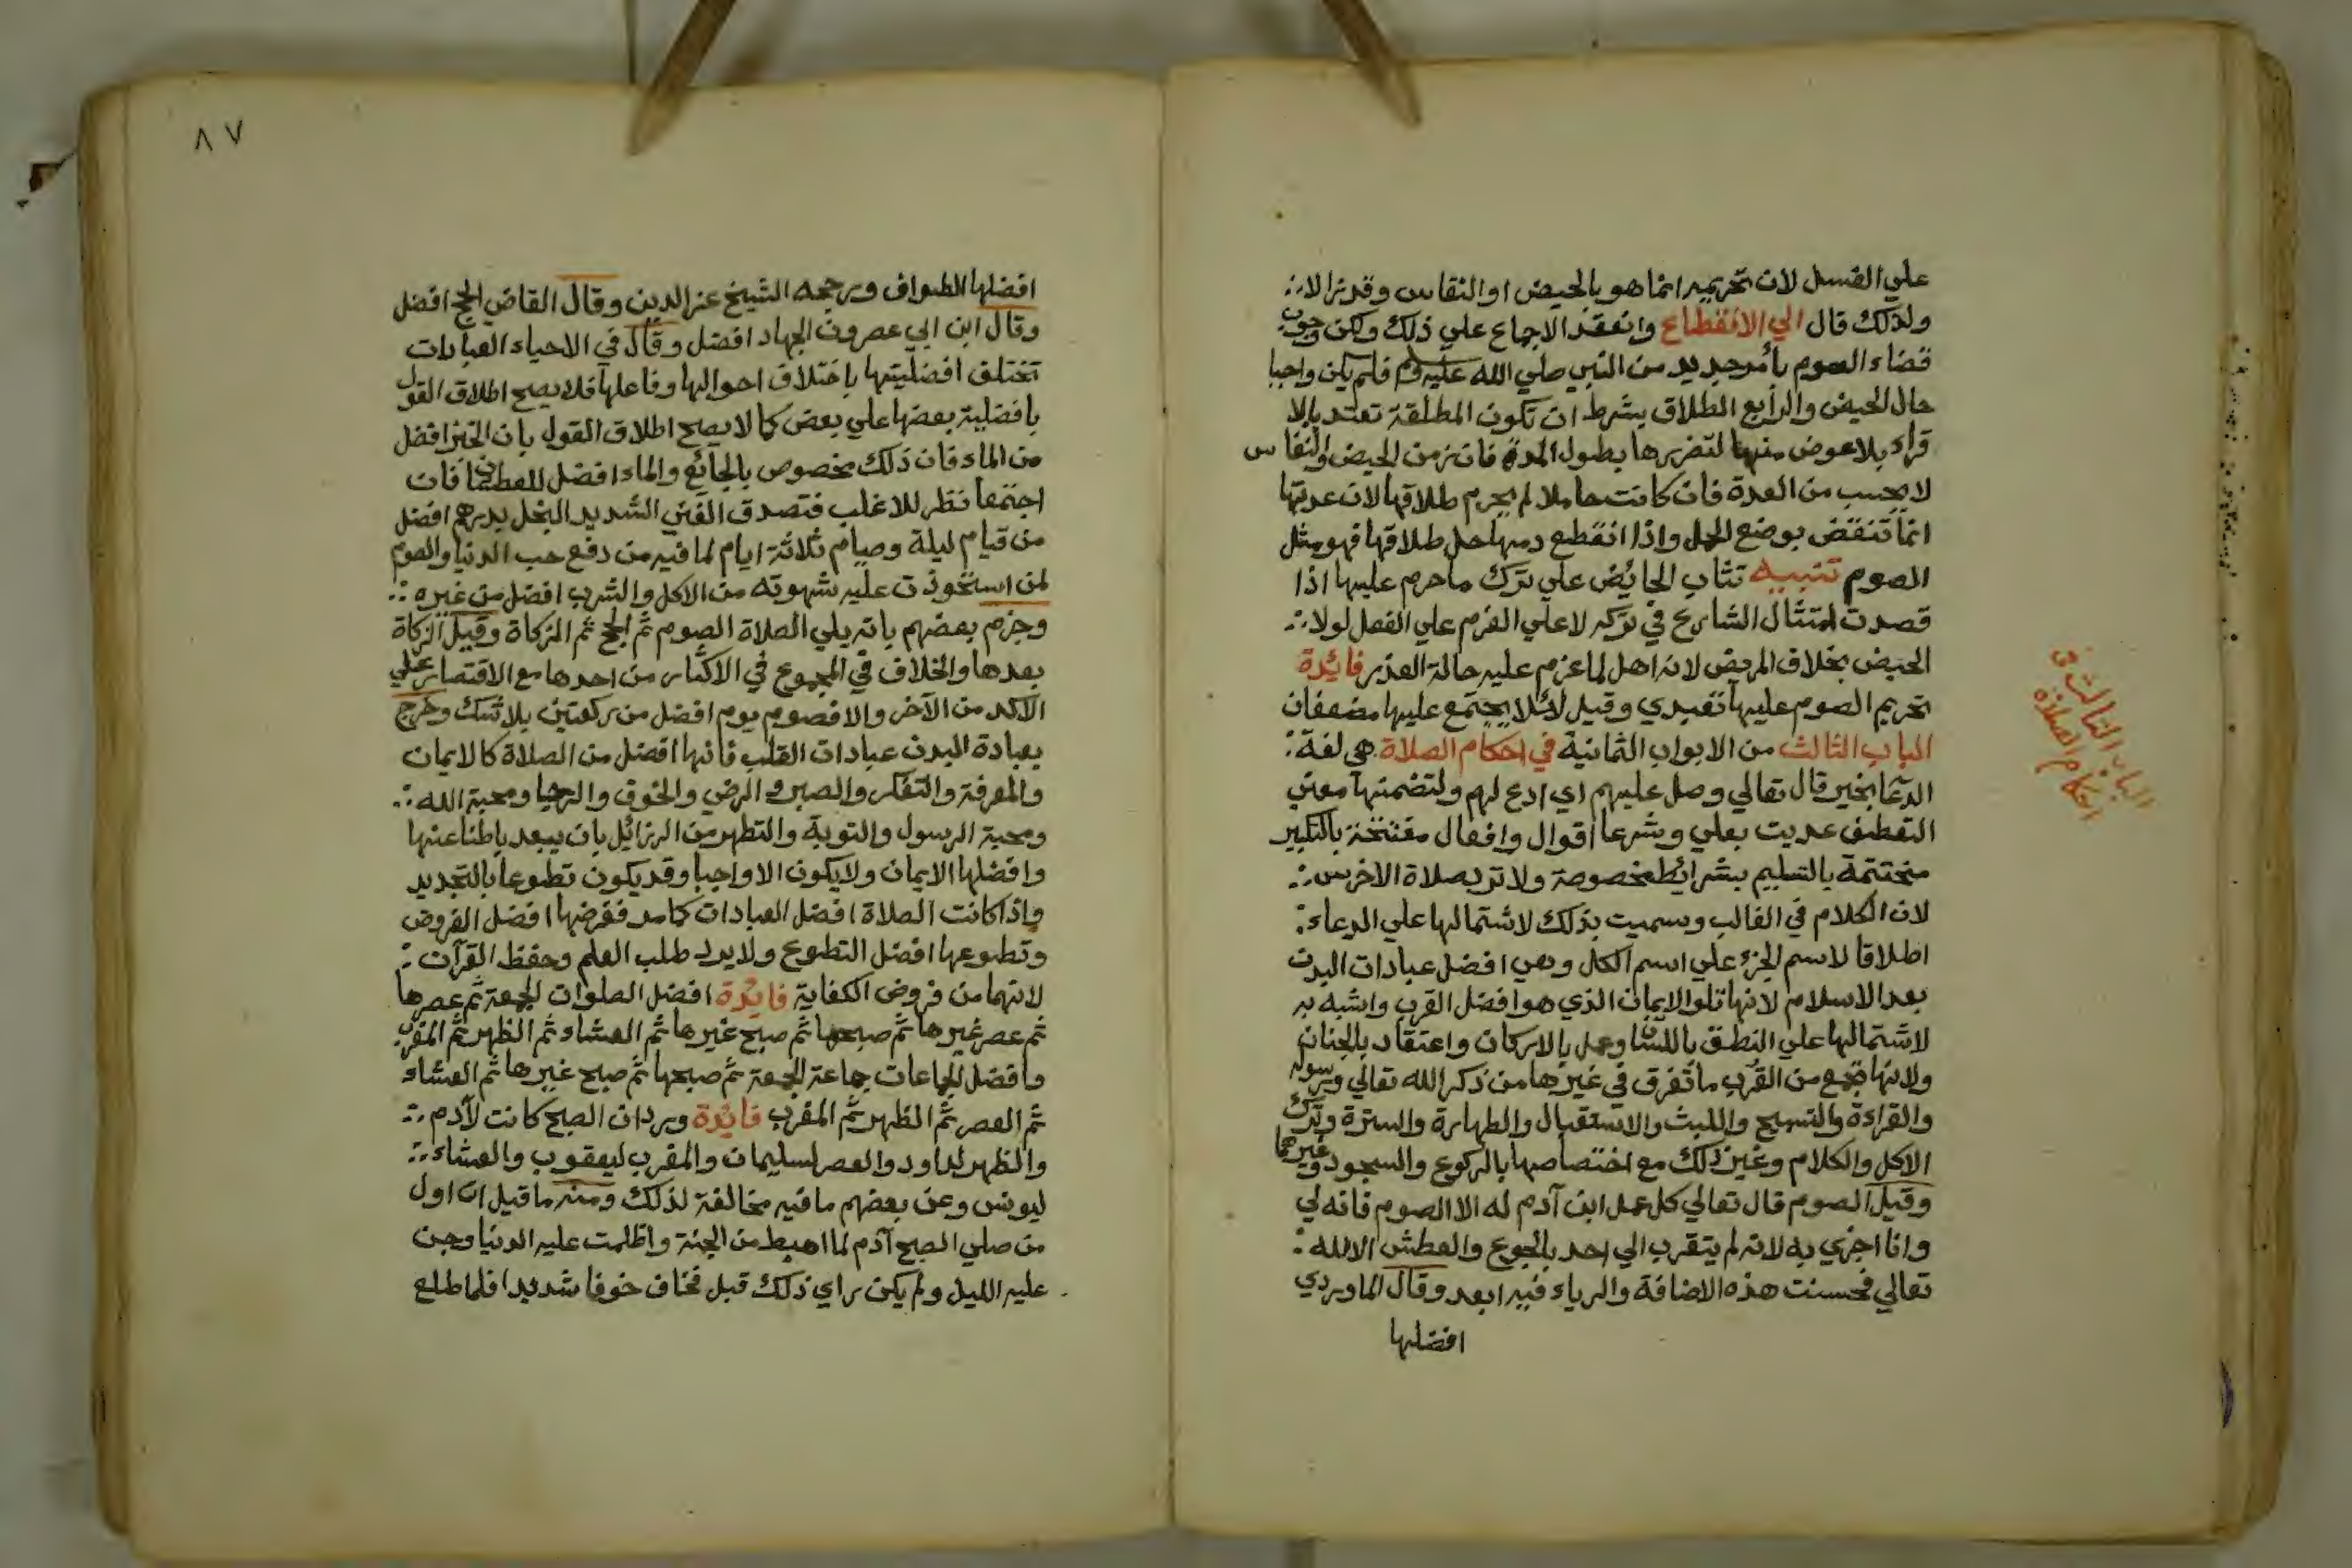 علي الغسل لان تحريمه انما هو بالحيض او النفاس وقد زالا
ولذلك قال الي الانقطاع وانعقد الاجماع علي ذلك ولكن وجوب
قضاء الصوم بأمر جديد من النبي صلي الله عليه وسلم فلم يكن واجبا
حال الحيض والرابع الطلاق بشرط ان تكون المطلقة تعتد بالا
قراء بلا عوض منها لتضررها بطول المدة فان زمن الحيض والنفاس
لا يحسب من العدة فان كانت حاملا لم يحرم طلاقها لان عدتها
انما تنقض بوضع الحمل واذا انقطع دمها حل طلاقها فهو مثل
الصوم تنبيه تثاب الحائض علي ترك ما حرم عليها اذا
قصدت امتثال الشارع في تركه لا علي العزم علي الفعل لولا
الحيض بخلاف المريض لانه اهل لما عزم عليه حالة العذر فائدة
تحريم الصوم عليها تعبدي وقيل لئلا يجتمع عليها مضعفان
الباب الثالث من الابواب الثمانية في احكام الصلاة هي لغة
الدعا بخير قال تعالي وصل عليهم اي ادع لهم ولتضمنها معني
التعطف عديت بعلي وشرعا اقوال وافعال مفتتحة بالتكبير
مختتمة بالتسليم بشرائط مخصوصة ولا ترد صلاة الاخرس
لان الكلام في الغالب وسميت بذلك لاشتمالها علي الدعاء
اطلاقا لاسم الجزء علي اسم الكل وهي افضل عبادات البدن
بعد الاسلام لانها تلو الايمان الذي هو افضل القرب واشبه به
لاشتمالها علي النطق باللسان وعمل بالاركان واعتقاد بالجنان
ولانها تجمع من القرب ما تفرق في غيرها من ذكر الله تعالي ورسوله
والقراءة والتسبيح واللبث والاستقبال والطهارة والسترة وترك
الاكل والكلام وغير ذلك مع اختصاصها بالركوع والسجود وغيرهما
وقيل الصوم قال تعالي كل عمل ابن آدم له الا الصوم فانه لي
وانا اجزي به لانه لم يتقرب الي احد بالجوع والعطش الا لله
تعالي فحسنت هذه الاضافة والرياء فيه ابعد وقال الماوردي
افضلها
الباب الثالث في
احكام الصلاة
٨٧
افضلها الطواف ورجحه الشيخ عز الدين وقال القاضي الحج افضل
وقال ابن ابي عصرون الجهاد افضل وقال في الاحياء العبادات
تختلف افضليتها باختلاف احوالها وفاعلها فلا يصح اطلاق القول
بافضلية بعضها علي بعض كما لا يصح اطلاق القول بان الخبز افضل
من الماء فان ذلك مخصوص بالجائع والماء افضل للعطشان فان
اجتمعا نظر للاغلب فتصدق الغني الشديد البخل بدرهم افضل
من قيام ليلة وصيام ثلاثة ايام لما فيه من دفع حب الدنيا والصوم
لمن استحوذت عليه شهوته من الاكل والشرب افضل من غيره
وجزم بعضهم بانه يلي الصلاة الصوم ثم الحج ثم الزكاة وقيل الزكاة
بعدها والخلاف في المجموع في الاكثار من احدها مع الاقتصار علي
الآكد من الآخر والا فصوم يوم افضل من ركعتين بلا شك وخرج
بعبادة البدن عبادات القلب فانها افضل من الصلاة كالايمان
والمعرفة والتفكر والصبر والرضي والخوف والرجا ومحبة الله
ومحبة الرسول والتوبة والتطهر من الرزائل بان يبعد باطنا عنها
وافضلها الايمان ولا يكون الا واجبا وقد يكون تطوعا بالتجديد
واذا كانت الصلاة افضل العبادات كما مر ففرضها افضل الفروض
وتطوعها افضل التطوع ولا يرد طلب العلم وحفظ القرآن
لانهما من فروض الكفاية فائدة افضل الصلوات الجمعة ثم عصرها
ثم عصر غيرها ثم صبحها ثم صبح غيرها ثم العشاء ثم الظهر ثم المغرب
وافضل الجماعات جماعة الجمعة ثم صبحها ثم صبح غيرها ثم العشاء
ثم العصر ثم الظهر ثم المغرب فائدة ورد ان الصبح كانت لآدم
والظهر لداود والعصر لسليمان والمغرب ليعقوب والعشاء
ليونس وعن بعضهم ما فيه مخالفة لذلك ومنه ما قيل ان اول
من صلي الصبح آدم لما اهبط من الجنة واظلمت عليه الدنيا وجن
عليه الليل ولم يكن راي ذلك قبل فخاف خوفا شديدا فلما طلع